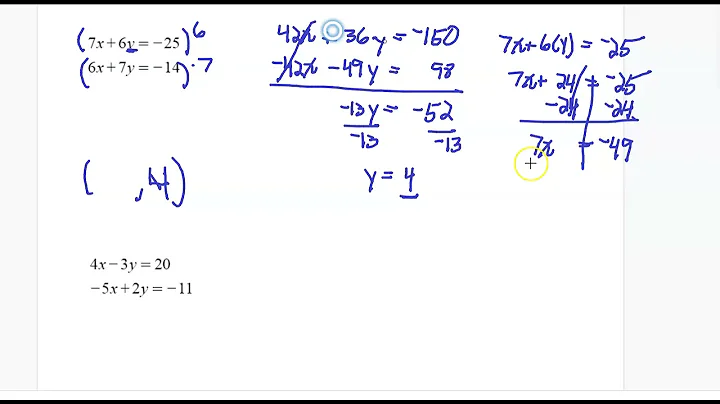 (7x+6y=−25)6
(6x+7y=−14)·7
42x 36y = -150
-42x - 49y = 98
-13y = -52
-13 -13
y = 4
( , 4)
7x+6(4) = -25
7x+ 24 = -25
-24 -24
7x = -49
4x−3y=20
−5x+2y=−11